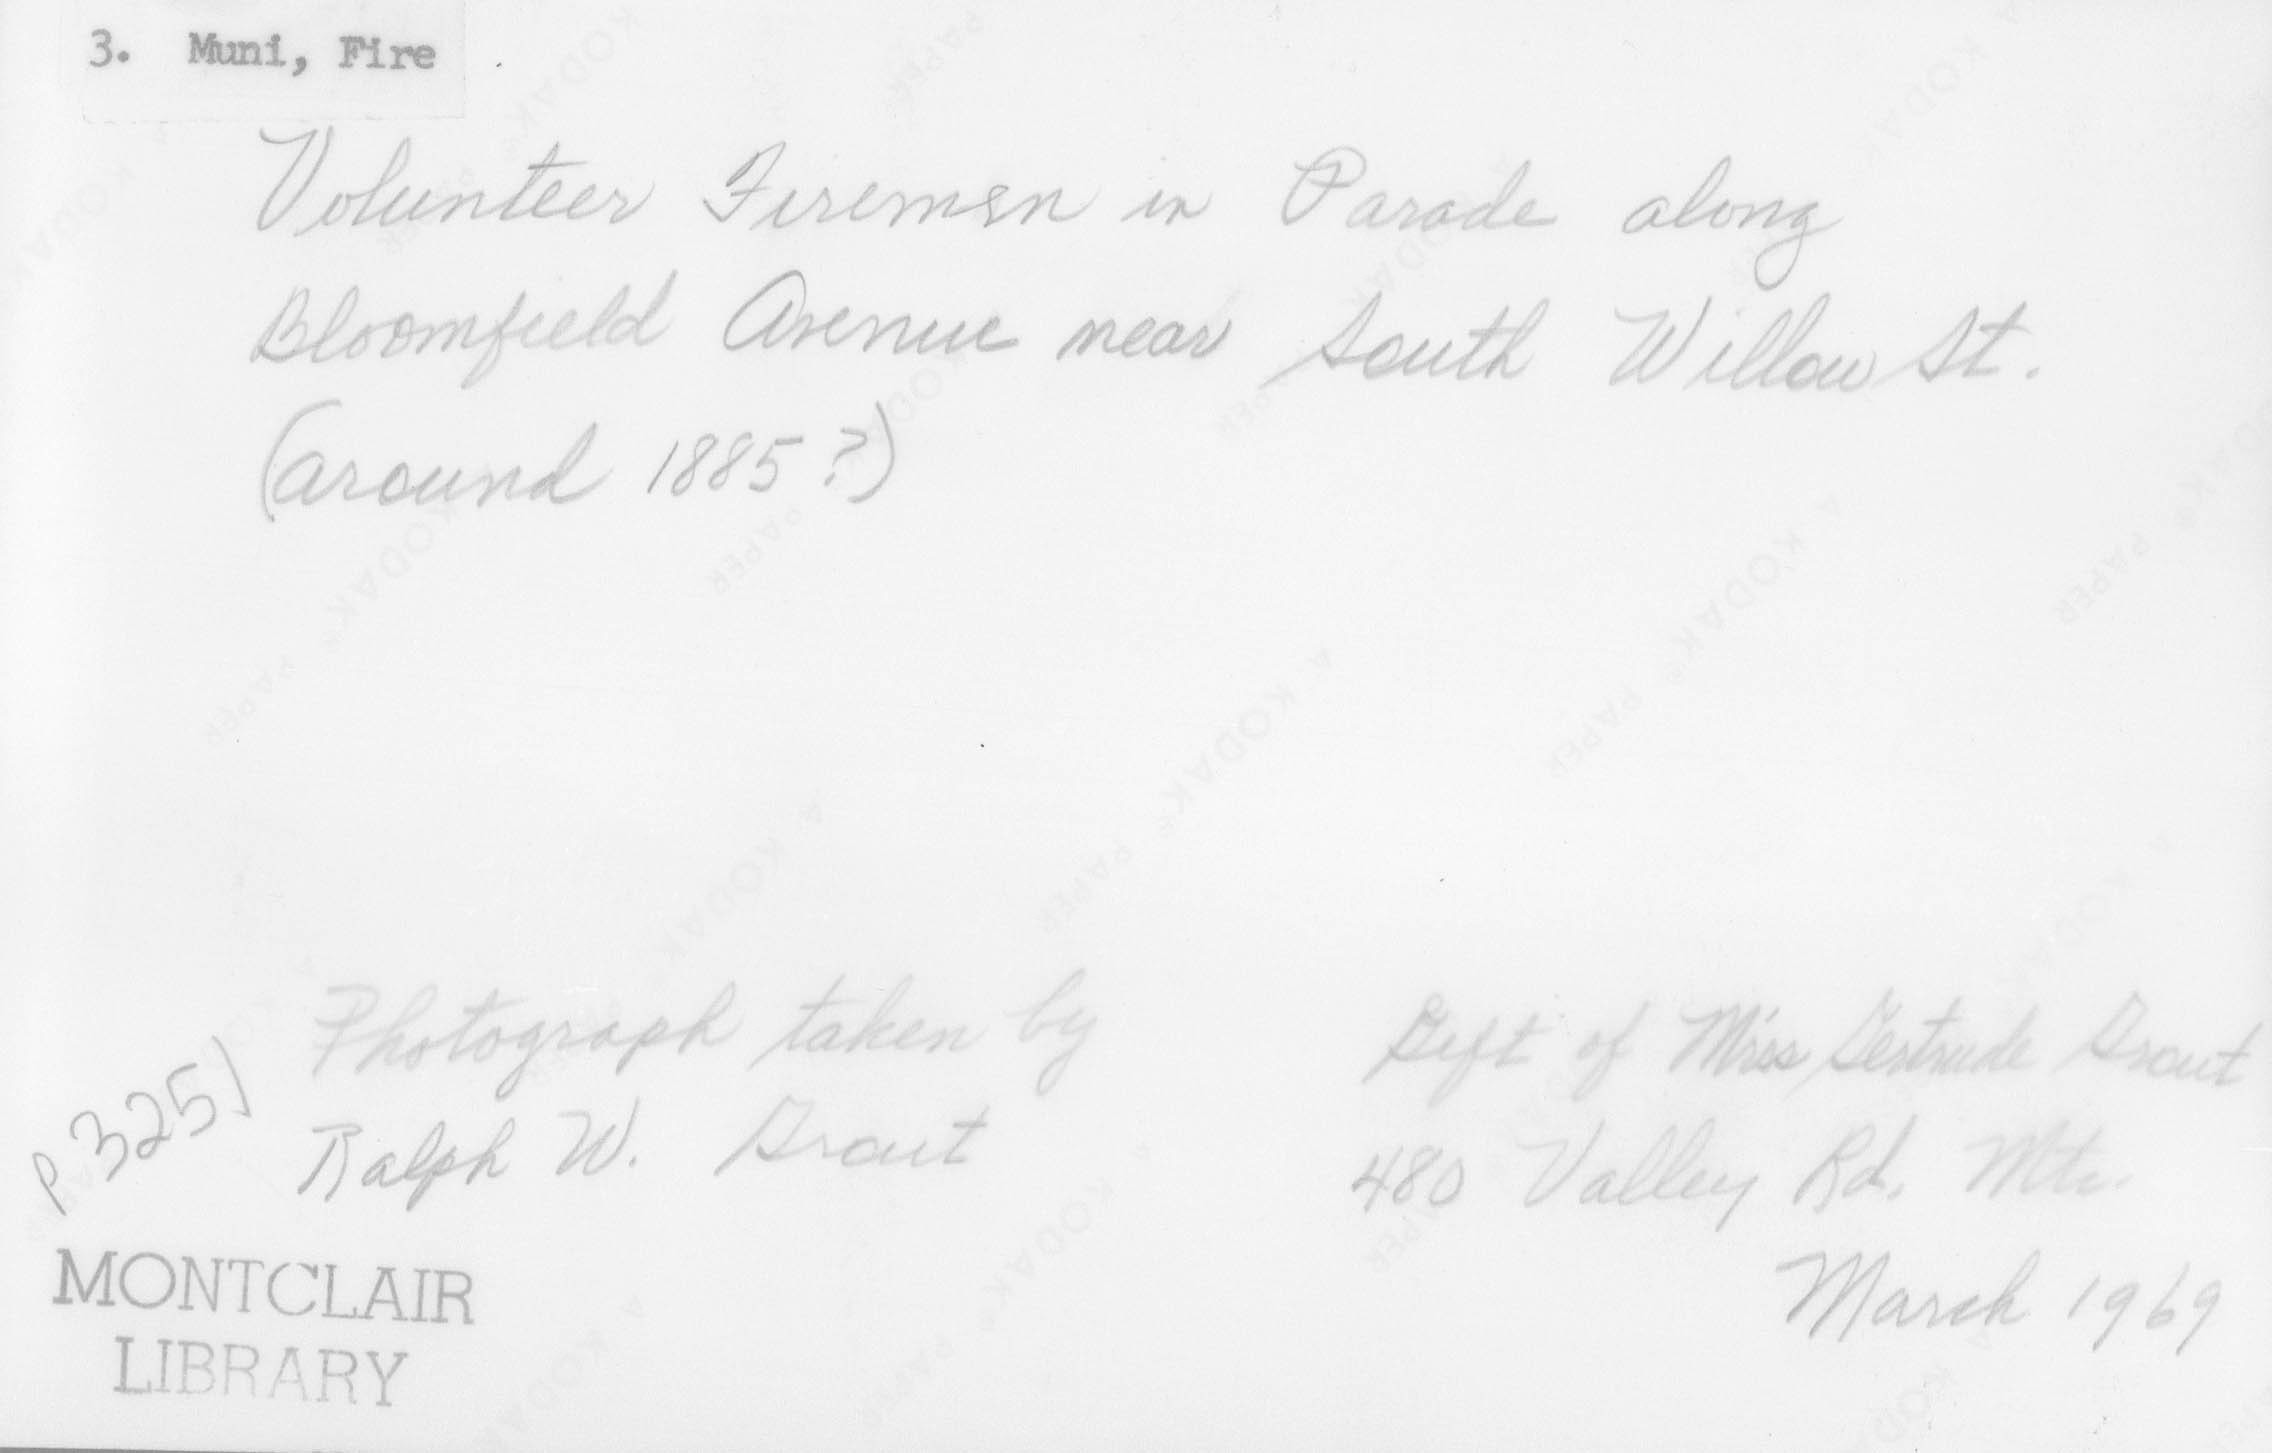 3. Muni, Fire
Volunteer Firemen in Parade along
Bloomfield Avenue near South Willow St.
(around 1885?)
Photograph taken by
Ralph W. Grout
Gift of Miss Gertrude Grout
480 Valley Rd. Mtc.
March 1969
P3251
MONTCLAIR
LIBRARY